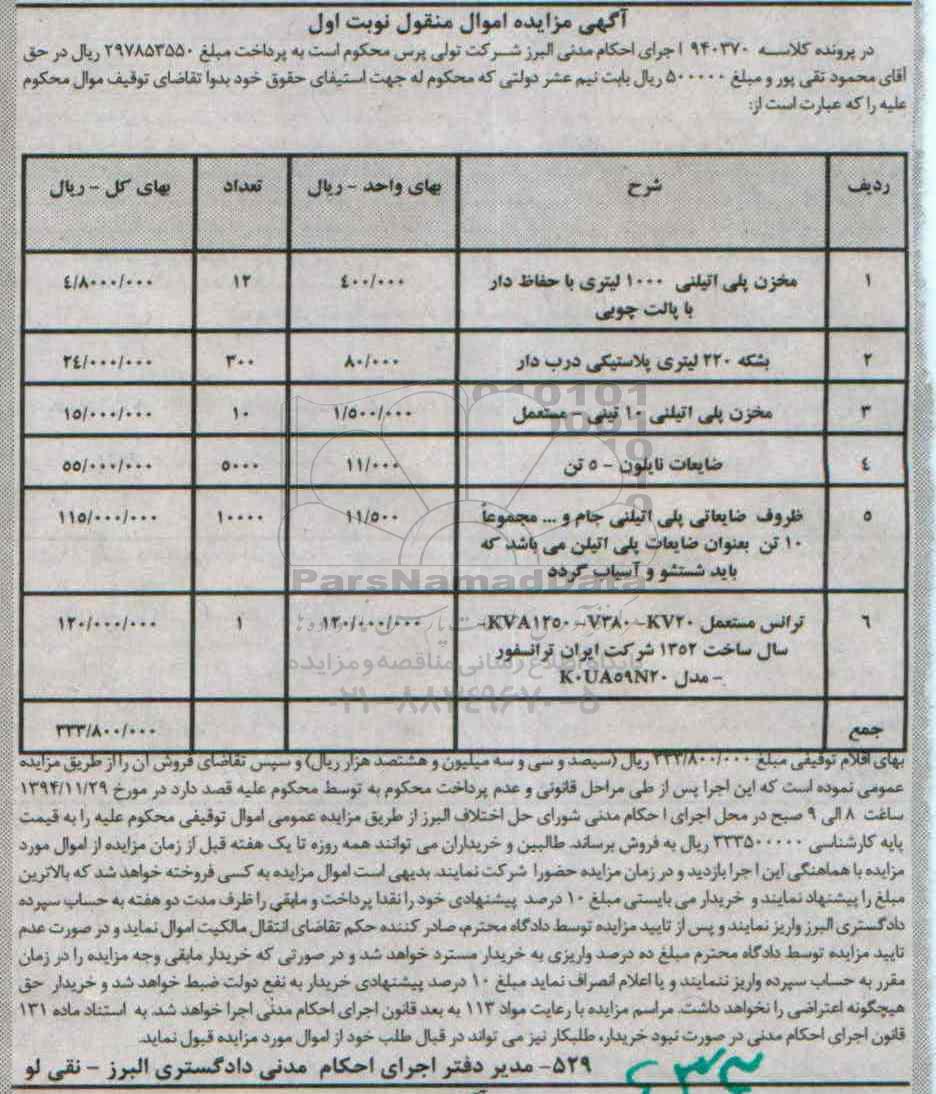 آگهی مزایده اموال منقول نوبت اول
در پرونده کلاسه ۹۴۰۳۷۰ اجرای احکام مدنی البرز شرکت تولی پرس محکوم است به پرداخت مبلغ ۲۹۷۸۵۳۵۵۰ ریال در حق
آقای محمود تقی پور و مبلغ ۵۰۰۰۰۰ ریال بابت نیم عشر دولتی که محکوم له جهت استیفای حقوق خود بدوا تقاضای توقیف موال محکوم
علیه را که عبارت است از:
ردیف شرح بهای واحد - ریال تعداد بهای کل - ریال
۱ مخزن پلی اتیلنی ۱۰۰۰ لیتری با حفاظ دار ۴۰۰/۰۰۰ ۱۲ ۴/۸۰۰۰/۰۰۰
با پالت چوبی
۲ بشکه ۲۲۰ لیتری پلاستیکی درب دار ۸۰/۰۰۰ ۳۰۰ ۲۴/۰۰۰/۰۰۰
۳ مخزن پلی اتیلنی ۱۰ تینی - مستعمل ۱/۵۰۰/۰۰۰ ۱۰ ۱۵/۰۰۰/۰۰۰
۴ ضایعات نایلون - ۵ تن ۱۱/۰۰۰ ۵۰۰۰ ۵۵/۰۰۰/۰۰۰
۵ ظروف ضایعاتی پلی اتیلنی جام و ... مجموعاً ۱۱/۵۰۰ ۱۰۰۰۰ ۱۱۵/۰۰۰/۰۰۰
۱۰ تن بعنوان ضایعات پلی اتیلن می باشد که
باید شستشو و آسیاب گردد
ParsNamadData
۶ ترانس مستعمل KVA۱۲۵۰-V۳۸۰-KV۲۰- ۱۲۰/۰۰۰/۰۰۰ ۱ ۱۲۰/۰۰۰/۰۰۰
سال ساخت ۱۳۵۲ شرکت ایران ترانسفور
- مدل K۰UA۵۹N۲۰
پایگاه اطلاع رسانی مناقصه و مزایده
۰۲۱-۸۸۳۴۹۶۷۰-۵
جمع ۳۳۳/۸۰۰/۰۰۰
بهای اقلام توقیفی مبلغ ۳۳۳/۸۰۰/۰۰۰ ریال (سیصد و سی و سه میلیون و هشتصد هزار ریال) و سپس تقاضای فروش آن را از طریق مزایده
عمومی نموده است که این اجرا پس از طی مراحل قانونی و عدم پرداخت محکوم به توسط محکوم علیه قصد دارد در مورخ ۱۳۹۴/۱۱/۲۹
ساعت ۸ الی ۹ صبح در محل اجرای ا حکام مدنی شورای حل اختلاف البرز از طریق مزایده عمومی اموال توقیفی محکوم علیه را به قیمت
پایه کارشناسی ۳۳۳۵۰۰۰۰۰ ریال به فروش برساند. طالبین و خریداران می توانند همه روزه تا یک هفته قبل از زمان مزایده از اموال مورد
مزایده با هماهنگی این اجرا بازدید و در زمان مزایده حضورا شرکت نمایند. بدیهی است اموال مزایده به کسی فروخته خواهد شد که بالاترین
مبلغ را پیشنهاد نمایند و خریدار می بایستی مبلغ ۱۰ درصد پیشنهادی خود را نقدا پرداخت و مابقی را ظرف مدت دو هفته به حساب سپرده
دادگستری البرز واریز نمایند و پس از تایید مزایده توسط دادگاه محترم، صادر کننده حکم تقاضای انتقال مالکیت اموال نماید و در صورت عدم
تایید مزایده توسط دادگاه محترم مبلغ ده درصد واریزی به خریدار مسترد خواهد شد و در صورتی که خریدار مابقی وجه مزایده را در زمان
مقرر به حساب سپرده واریز ننمایند و یا اعلام انصراف نماید مبلغ ۱۰ درصد پیشنهادی خریدار به نفع دولت ضبط خواهد شد و خریدار حق
هیچگونه اعتراضی را نخواهد داشت. مراسم مزایده با رعایت مواد ۱۱۳ به بعد قانون اجرای احکام مدنی اجرا خواهد شد. به استناد ماده ۱۳۱
قانون اجرای احکام مدنی در صورت نبود خریدار، طلبکار نیز می تواند در قبال طلب خود از اموال مورد مزایده قبول نماید.
۵۲۹- مدیر دفتر اجرای احکام مدنی دادگستری البرز - نقی لو